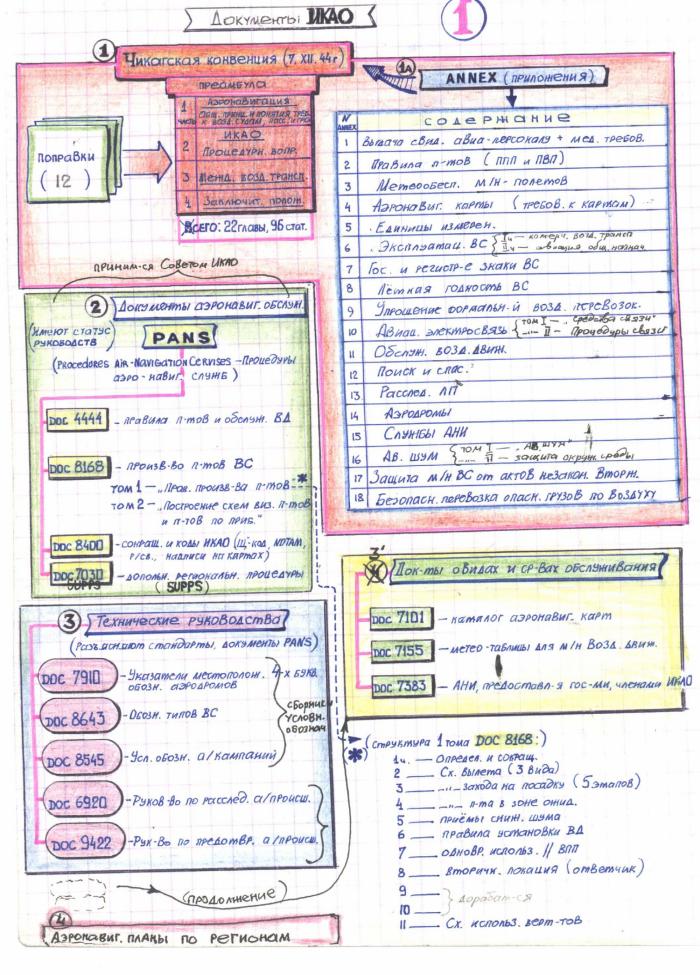 Документы ИКАО
1
1 Чикагская конвенция (7. XII. 44г)
преамбула
1 часть Аэронавигация
Общ. принц. и понятия, треб. к возд. судам,
2 ИКАО
Процедурн. вопр.
3 Межд. возд. трансп.
4 Заключит. полож.
Всего: 22 главы, 96 стат.
Поправки
(12)
1А ANNEX (приложения)
N ANNEX содержание
1 Выдача свид. авиа-персоналу + мед. требов.
2 Правила п-тов (ППП и ПВП)
3 Метеообесп. м/н-полетов
4 Аэронавиг. карты (требов. к картам)
5 Единицы измерен.
6 Эксплуатац. ВС { I ч — комерч. возд. трансп
II ч. — авиация общ. назнач.
7 Гос. и регистр-е знаки ВС
8 Лётная годность ВС
9 Упрощение формальн-й возд. перевозок.
10 Авиац. электросвязь { том I — „средства связи"
„ II — Процедуры связи
11 Обслуж. возд. движ.
12 Поиск и спас.
13 Расслед. ЛП
14 Аэродромы
15 Службы АНИ
16 Ав. шум { Том I — „Ав. шум"
„ II — защита окруж. среды
17 Защита м/н ВС от актов незакон. вторж.
18 Безопасн. перевозка опасн. грузов по воздуху
приним-ся Советом ИКАО
2 Документы аэронавиг. обслуж.
(Имеют статус руководств)
PANS
(Procedores Air-Navigation Cervises – Процедуры
аэро-навиг. служб)
DOC 4444 – правила п-тов и обслуж. ВД
DOC 8168 – произв-во п-тов ВС
том 1 – „Прав. произв-ва п-тов *
том 2 – „Построение схем виз. п-тов
и п-тов по приб."
DOC 8400 – сокращ. и коды ИКАО (Щ-код, NOTAM,
р/св., надписи на картах)
DOC 7030 – дополн. региональн. процедуры
SUPPS (SUPPS)
3 Технические руководства
(Разъясняют стандарты, документы PANS)
DOC 7910 – Указатели местополож. 4-х букв.
обозн. аэродромов
DOC 8643 – Обозн. типов ВС
DOC 8545 – Усл. обозн. а/кампаний
сборники условн. обознач
DOC 6920 – Руков-во по расслед. а/происш.
DOC 9422 – Рук-во по предотвр. а/происш.
(продолжение)
4
Аэронавиг. планы по регионам
3'
Док-ты о видах и ср-вах обслуживания
DOC 7101 – каталог аэронавиг. карт
DOC 7155 – метео-таблицы для м/н возд. движ.
DOC 7383 – АНИ, предоставл-я гос-ми, членами ИКАО
* (структура 1 тома DOC 8168:)
1 ч. — Определ. и сокращ.
2 — Сх. вылета (3 вида)
3 — „ — захода на посадку (5 этапов)
4 — „ — п-та в зоне ожид.
5 — приёмы сниж. шума
6 — правила установки ВД
7 — одновр. использ. // ВПП
8 — вторичн. локация (ответчик)
9 —
10 — } дорабат-ся
11 — Сх. использ. верт-тов